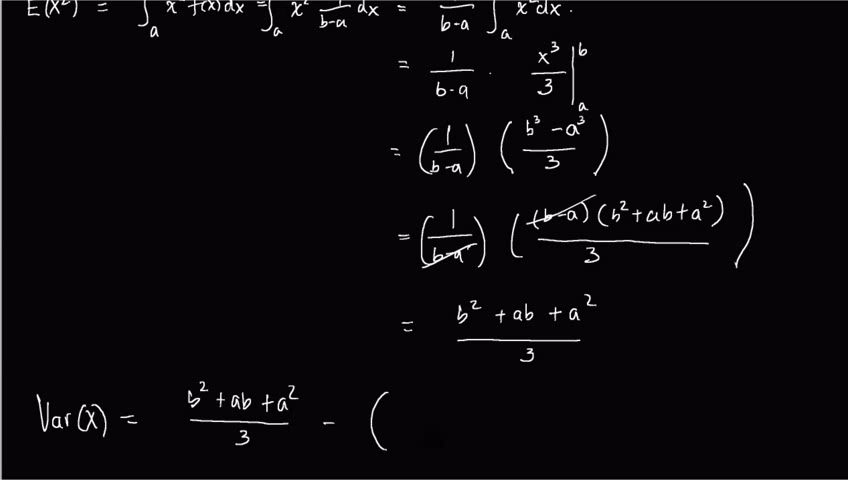 E(X²) = ∫ₐ x² f(x) dx = ∫ₐ x² 1/(b-a) dx = 1/(b-a) ∫ₐ x² dx.
= 1/(b-a) · x³/3 |ₐᵇ
= (1/(b-a)) ((b³-a³)/3)
= (1/(b-a)) ((b-a)(b²+ab+a²)/3)
= (b²+ab+a²)/3
Var(X) = (b²+ab+a²)/3 - (